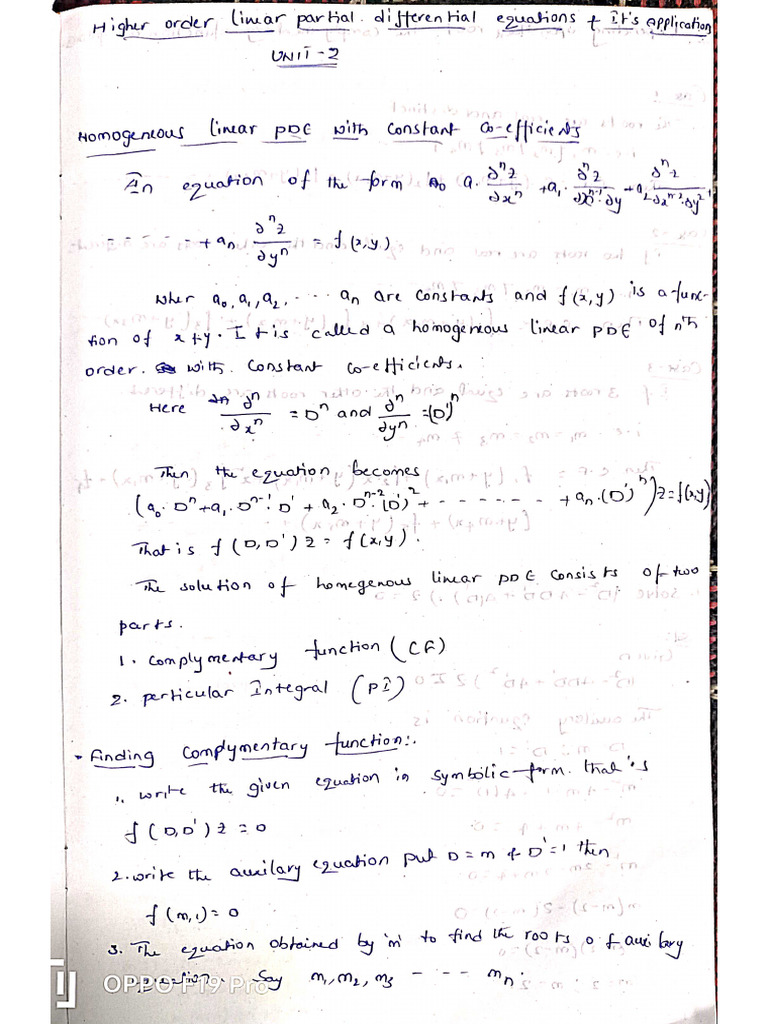 Higher order linear partial differential equations & It's application
UNIT-2
Homogeneous linear PDE with constant co-efficients
An equation of the form a₀ ∂ⁿz/∂xⁿ + a₁ · ∂ⁿz/∂xⁿ⁻¹·∂y + a₂ ∂ⁿz/∂xⁿ⁻²·∂y² +
- - - - - + aₙ ∂ⁿz/∂yⁿ = f(x,y)
wher a₀, a₁, a₂, ... aₙ are constants and f(x,y) is a func-
tion of x & y. It is called a homogenious linear PDE of nth
order. with constant co-efficients.
Here ∂ⁿ/∂xⁿ = Dⁿ and ∂ⁿ/∂yⁿ = (D')ⁿ
Then the equation becomes
(a₀·Dⁿ + a₁·Dⁿ⁻¹·D' + a₂·Dⁿ⁻²·(D')² + - - - - - - - + aₙ·(D')ⁿ)z = f(x,y)
That is f(D,D')z = f(x,y).
The solution of homegenous linear PDE consists of two
parts.
1. complymentary function (CF)
2. perticular Integral (PI)
- Finding complymentary function:.
1. write the given equation in symbolic-form. that is
f(D,D')z = 0
2. write the auxilary equation put D=m & D'=1 then
f(m,1)=0
3. The equation obtained by 'm' to find the roots of auxilary
equation. Say m₁, m₂, m₃ - - - - mₙ.
OPPO F19 Pro